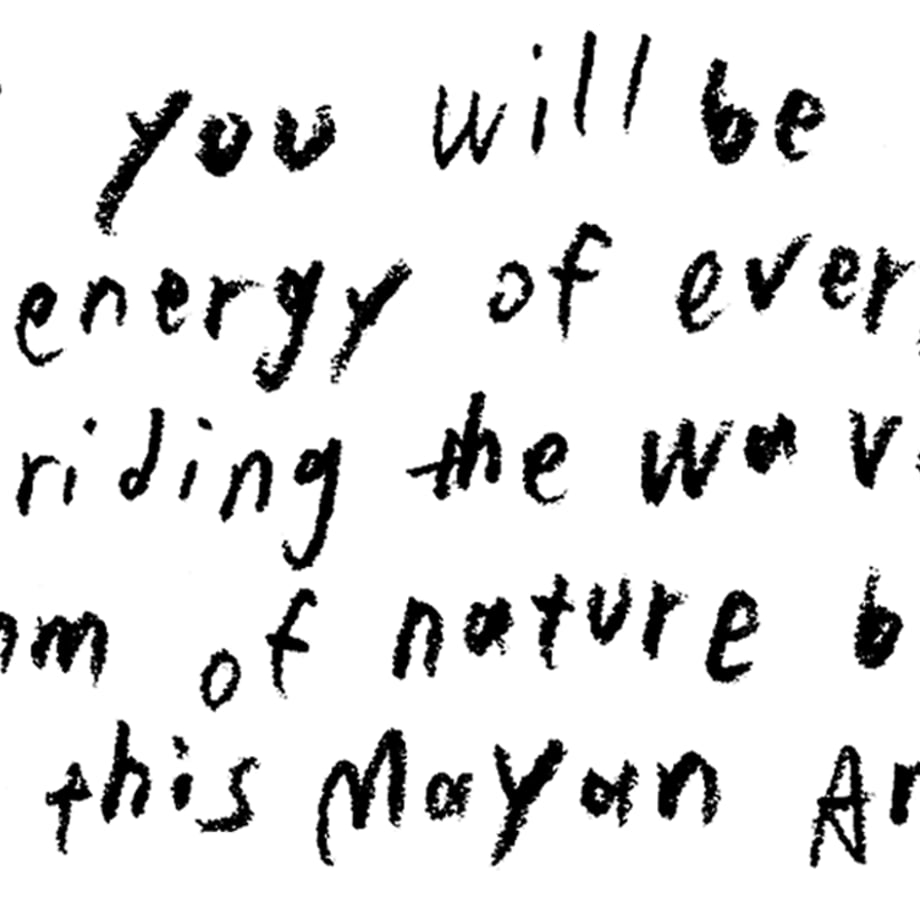 you will be
energy of ever
riding the wav
of nature b
this Mayan Ar